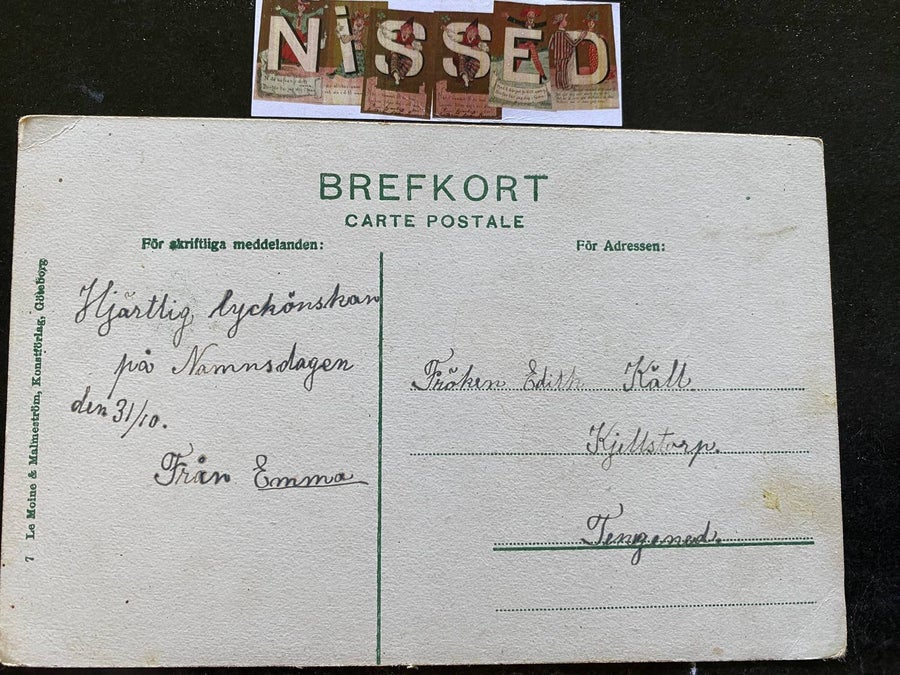 NiSSED
BREFKORT
CARTE POSTALE
För skriftliga meddelanden:
För Adressen:
Hjärtlig lyckönskan
på Namnsdagen
den 31/10.
Från Emma
Fröken Edith Käll
Kjellstorp.
Tengened.
7 Le Moine & Malmeström, Konstförlag, Göteborg